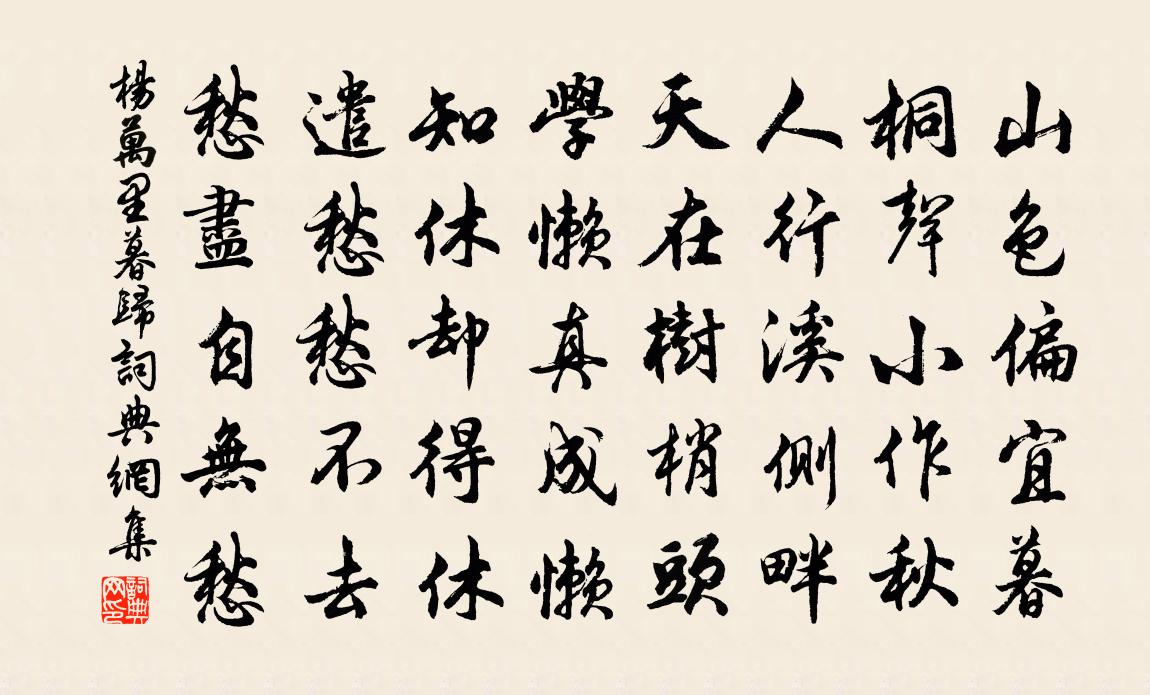 山色偏宜暮
桐聲小作秋
人行溪側畔
天在樹梢頭
學懶真成懶
知休却得休
遣愁愁不去
愁盡自無愁
楊萬里暮歸詞典網集
詞典網印